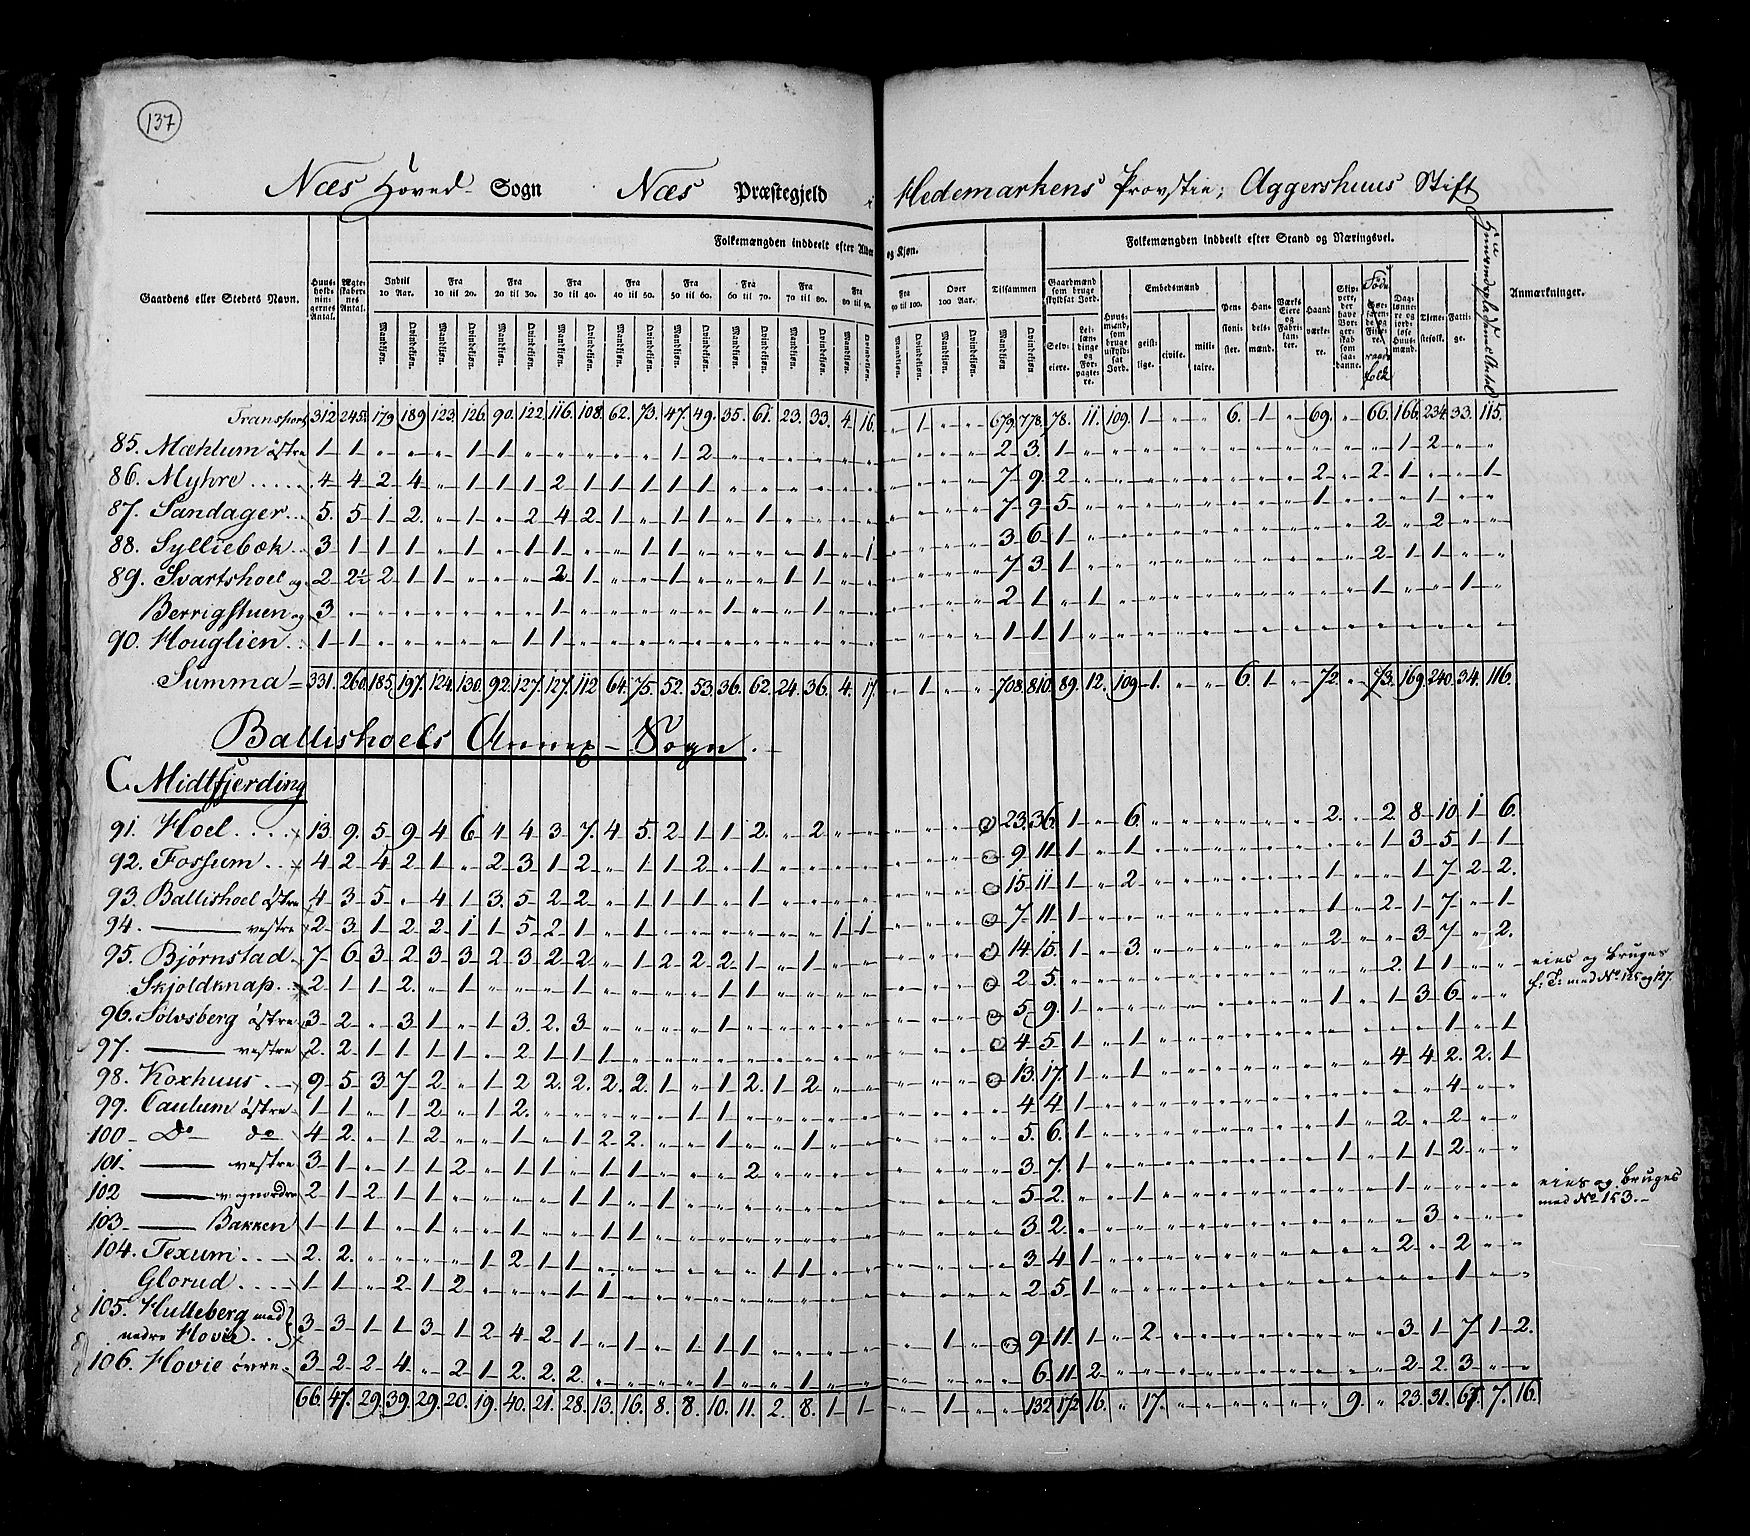 137
Næs Hoved Sogn Næs Præstegjeld i Hedemarkens Provstie, Aggershuus Stift
Gaardens eller Stedets Navn.
Huusholdningernes Antal.
Ægteskabernes Antal.
Folkemængden inddeelt efter Alder og Kjøn.
Indtil 10 Aar.
Fra 10 til 20.
Fra 20 til 30.
Fra 30 til 40.
Fra 40 til 50.
Fra 50 til 60.
Fra 60 til 70.
Fra 70 til 80.
Fra 80 til 90.
Fra 90 til 100.
Over 100 Aar.
Tilsammen
Mandkjøn. Qvindekjøn.
Folkemængden inddeelt efter Stand og Næringsvei.
Gaardmænd som bruge skyldsat Jord.
Selveiere.
Leilændinge og Forpagtere.
Huusmænd, som bruge uskyldsat Jord.
Embedsmænd
geistlige. civile. militaire.
Pensionister.
Handelsmænd.
Værks Eiere og Fabrikanter.
Haandværkere.
Daglønnere og jordløse Huusmænd.
Tjenestefolk.
Fattige.
Anmærkninger.
Transport 312 245½ 179 189 123. 126. 90. 122. 116. 108. 62. 73. 47. 49. 35. 61. 23. 33. 4. 16. „ 1 „ „ 679. 778. 78. 11. 109. 1 „ „ 6. 1 „ 69. „ 66. 166. 234. 33. 115.
85. Mæhlum østre 1 1 „ „ „ 1 1 „ „ „ „ „ 1 2 „ „ „ „ „ „ „ „ „ „ 2 3. 1 „ „ „ „ „ „ „ „ „ „ „ 1 2 „ „
86. Myhre 4 4 2 4 „ 1 1 1 2 1 1 1 1 1 „ „ „ „ „ „ „ „ „ „ 7 9 2 „ „ „ „ „ „ „ „ 2 „ 2 1 „ „ 1
87. Sandager 5. 5 1 2. „ 1 „ 2 4 2 1 „ 1 1 „ 1 „ „ „ „ „ „ „ „ 7 9 5 „ „ „ „ „ „ „ „ 1 „ „ „ 1 „ „
88. Sylliebæk 3 1 1 1 „ 1 „ 1 1 „ „ 1 1 „ „ „ „ 1 „ 1 „ „ „ „ 3 6 1 „ „ „ „ „ „ „ „ „ „ 2 „ 2 „ „
89. Svartshoel og 2 2½ 2 1 1 „ „ „ 2 1 „ „ 1 „ „ „ 1 1 „ „ „ „ „ „ 7 3 1 „ „ „ „ „ „ „ „ „ „ 2 1 1 „ „
Berrigstuen og 3 „ „ „ „ „ „ „ 1 „ „ „ „ „ 1 „ „ 1 „ „ „ „ „ „ 2 1 „ 1 „ „ „ „ „ „ „ „ „ 1 „ „ 1 „
90. Houglien 1 1 „ „ „ „ „ 1 1 „ „ „ „ „ „ „ „ „ „ „ „ „ „ „ 1 1 1 „ „ „ „ „ „ „ „ „ „ „ „ „ „ „
Summa = 331. 260. 185. 197. 124. 130. 92. 127. 127. 112 64. 75. 52. 53. 36. 62. 24. 36. 4. 17. „ 1 „ „ 708. 810. 89. 12. 109. 1. „ „ 6. 1 „ 72. „ 73. 169. 240. 34. 116.
Ballishoels Annex-Sogn.
C. Midtfjerding
91. Hoel 13. 9. 5. 9. 4 6 4 4 3. 7. 4 5. 2 1 1 2. „ 2 „ „ „ „ „ „ 23. 36. 1 „ 6. „ „ „ „ „ „ 2. „ 2 8 10. 1 6.
92. Fossum 4 2 4 2 1 „ 2 3 1 2 „ 1 1 2 „ 1 „ „ „ „ „ „ „ „ 9 11 1 „ 1 „ „ „ „ „ „ „ „ 1 3 5 1 1
93. Ballishoel østre 4 3 5 „ 4 1 3. 5 2 2 „ 1 1 1 „ 1 „ „ „ „ „ „ „ „ 15 11 1 „ 2 „ „ „ „ „ „ 1 „ „ 1 7 2 2.
94. ——— vestre 2 3 1 2 2 1 1 5 2 1 „ 1 „ „ „ „ „ „ 1 1 „ „ „ „ 7 11 1 „ „ „ „ „ „ „ „ 1 „ 2 1 7 „ 1
95. Bjørnstad 7 6 3 2 3 3 2 3 2 2 „ 1 2 2 2 1 „ 1 „ „ „ „ „ „ 14 15. 1 „ 3. „ „ „ „ „ „ 2 „ „ 3 7 „ 2.
Skjoldknap 2 1 1 2. „ 1 „ „ „ 1 „ „ „ „ 1 1 „ „ „ „ „ „ „ „ 2 5. „ „ „ „ „ „ „ „ „ „ „ 2. 1 1 „ „ eies og bruges f: T: med No 125 og 127.
96. Sølvsberg østre 3 2 „ 3 1 „ 1 3. 2. 3 „ „ „ „ „ „ „ „ „ „ „ „ „ „ 5 9. 1 „ „ „ „ „ „ „ „ 1 „ 1 3 6. „ „
97. ——— vestre 2. 2 1 1 1 1 „ 2 1 1 1 „ „ „ „ „ „ „ „ „ „ „ „ „ 4 5 1 „ 1 „ „ „ „ „ „ „ „ „ „ 1 „ 1
98. Koxhuus 9 5 3 7 2 „ 1 2 2. 2. 2. 2. 1 „ 1 2. 1 2. „ „ „ „ „ „ 13. 17. 1 „ 1 „ „ „ „ „ „ „ „ 4 4 2. 2. 1
99. Caulum østre 1 1 „ 1 2 „ 1 2. „ „ „ „ „ 1 1 „ „ „ „ „ „ „ „ „ 4 4 1 „ „ „ „ „ „ „ „ „ „ „ „ 4 „ „
100. Do do 4 2. „ 1 2 „ „ 1 „ 1 2 2. „ „ 1 „ „ 1 „ „ „ „ „ „ 5. 6. 1 „ „ „ „ „ „ „ „ 1 „ 2 „ 2 „ „
101. ——— vestre 3 1 „ 1 1 2 „ 1 1 „ 1 1 „ „ „ 2 „ „ „ „ „ „ „ „ 3 7. 1 „ „ „ „ „ „ „ „ 1 „ 1 1 2 „ „
102 ——— 2 1 2 1 1 „ „ „ „ 1 1 „ 1 „ „ „ „ „ „ „ „ „ „ „ 5 2. „ „ 1 „ „ „ „ „ „ „ „ 1 „ „ „ „ eies og bruges med No 153.
103 ——— Bakken 1 1 1 „ 1 „ „ 1 „ „ 1 1 „ „ „ „ „ „ „ „ „ „ „ „ 3 2. „ „ „ „ „ „ „ „ „ „ „ „ 3 „ „ „
104. Texum 2. 2. „ „ „ „ 1 2 1 1 „ „ „ „ „ „ 1 1 „ „ „ „ „ „ 3 4 1 „ „ „ „ „ „ „ „ „ „ 2 „ 2 „ „
Glorud 1 1 „ 2 1 2 „ „ „ 1 1 „ „ „ „ „ „ „ „ „ „ „ „ „ 2 5 1 „ „ „ „ „ „ „ „ „ „ „ „ 1 „ „
105. Hulleberg med
nedre Hovie 3 3 1 1 3 1 2 4 2 1 „ 1 „ 1 1 1 „ „ „ „ „ 1 „ „ 9 11 1 „ 2 „ „ „ „ „ „ „ „ 3 1 7 1 2.
106. Hovie øvre 3 2 2 4 „ 2 1 2. 2. 2. „ „ „ „ 1 „ „ 1 „ „ „ „ „ „ 6 11 2 „ „ „ „ „ „ „ „ „ „ 2 2. 3 „ „
66. 47. 29. 39. 29. 20. 19. 40. 21. 28. 13. 16. 8. 8. 10. 11. 2. 8. 1 1 „ 1 „ „ 132 172 16. „ 17. „ „ „ „ „ „ 9. „ 23. 31. 67. 7. 16.